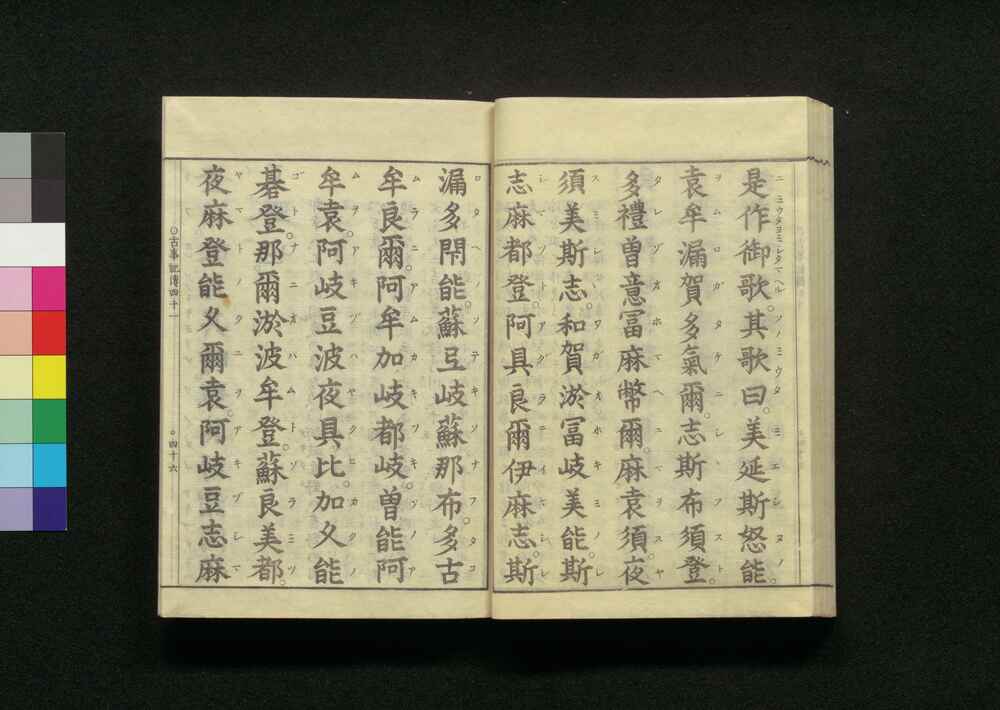 是作御歌。其歌曰。美延斯怒能。
袁牟漏賀多氣爾。志斯布須登。
多禮曽意富麻幣爾。麻袁須。夜
須美斯志。和賀淤富岐美能。斯
志麻都登。阿具良爾伊麻志。斯
漏多閇能。蘇弖岐蘇那布。多古
牟良爾。阿牟加岐都岐。曽能阿
牟袁。阿岐豆波夜具比。加久能
碁登。那爾淤波牟登。蘇良美都。
夜麻登能久爾袁。阿岐豆志麻
○古事記傳四十一
○四十六